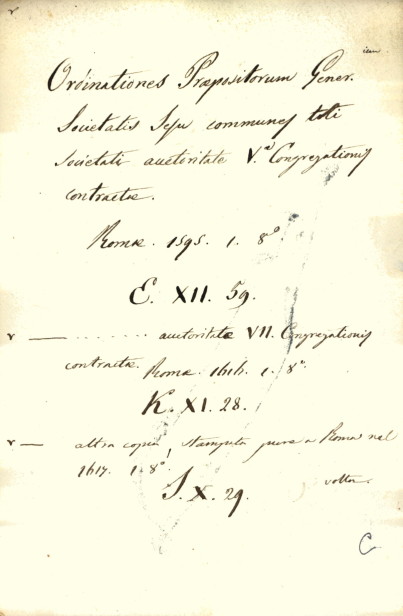 Ordinationes Præpositorum Gener.
Societatis Jesu communes toti
Societati auctoritate V.ª Congregationis
contractæ.
Romæ. 1595. 1. 8º.
E. XII. 59.
r — . . . . . . . auctoritate VII. Congregationis
contractæ. Romæ. 1616. 1. 8º.
K. XI. 28.
r — altra copia, stampata pure a Roma nel
1617. 1. 8º.
J. X. 29.
volta.
C